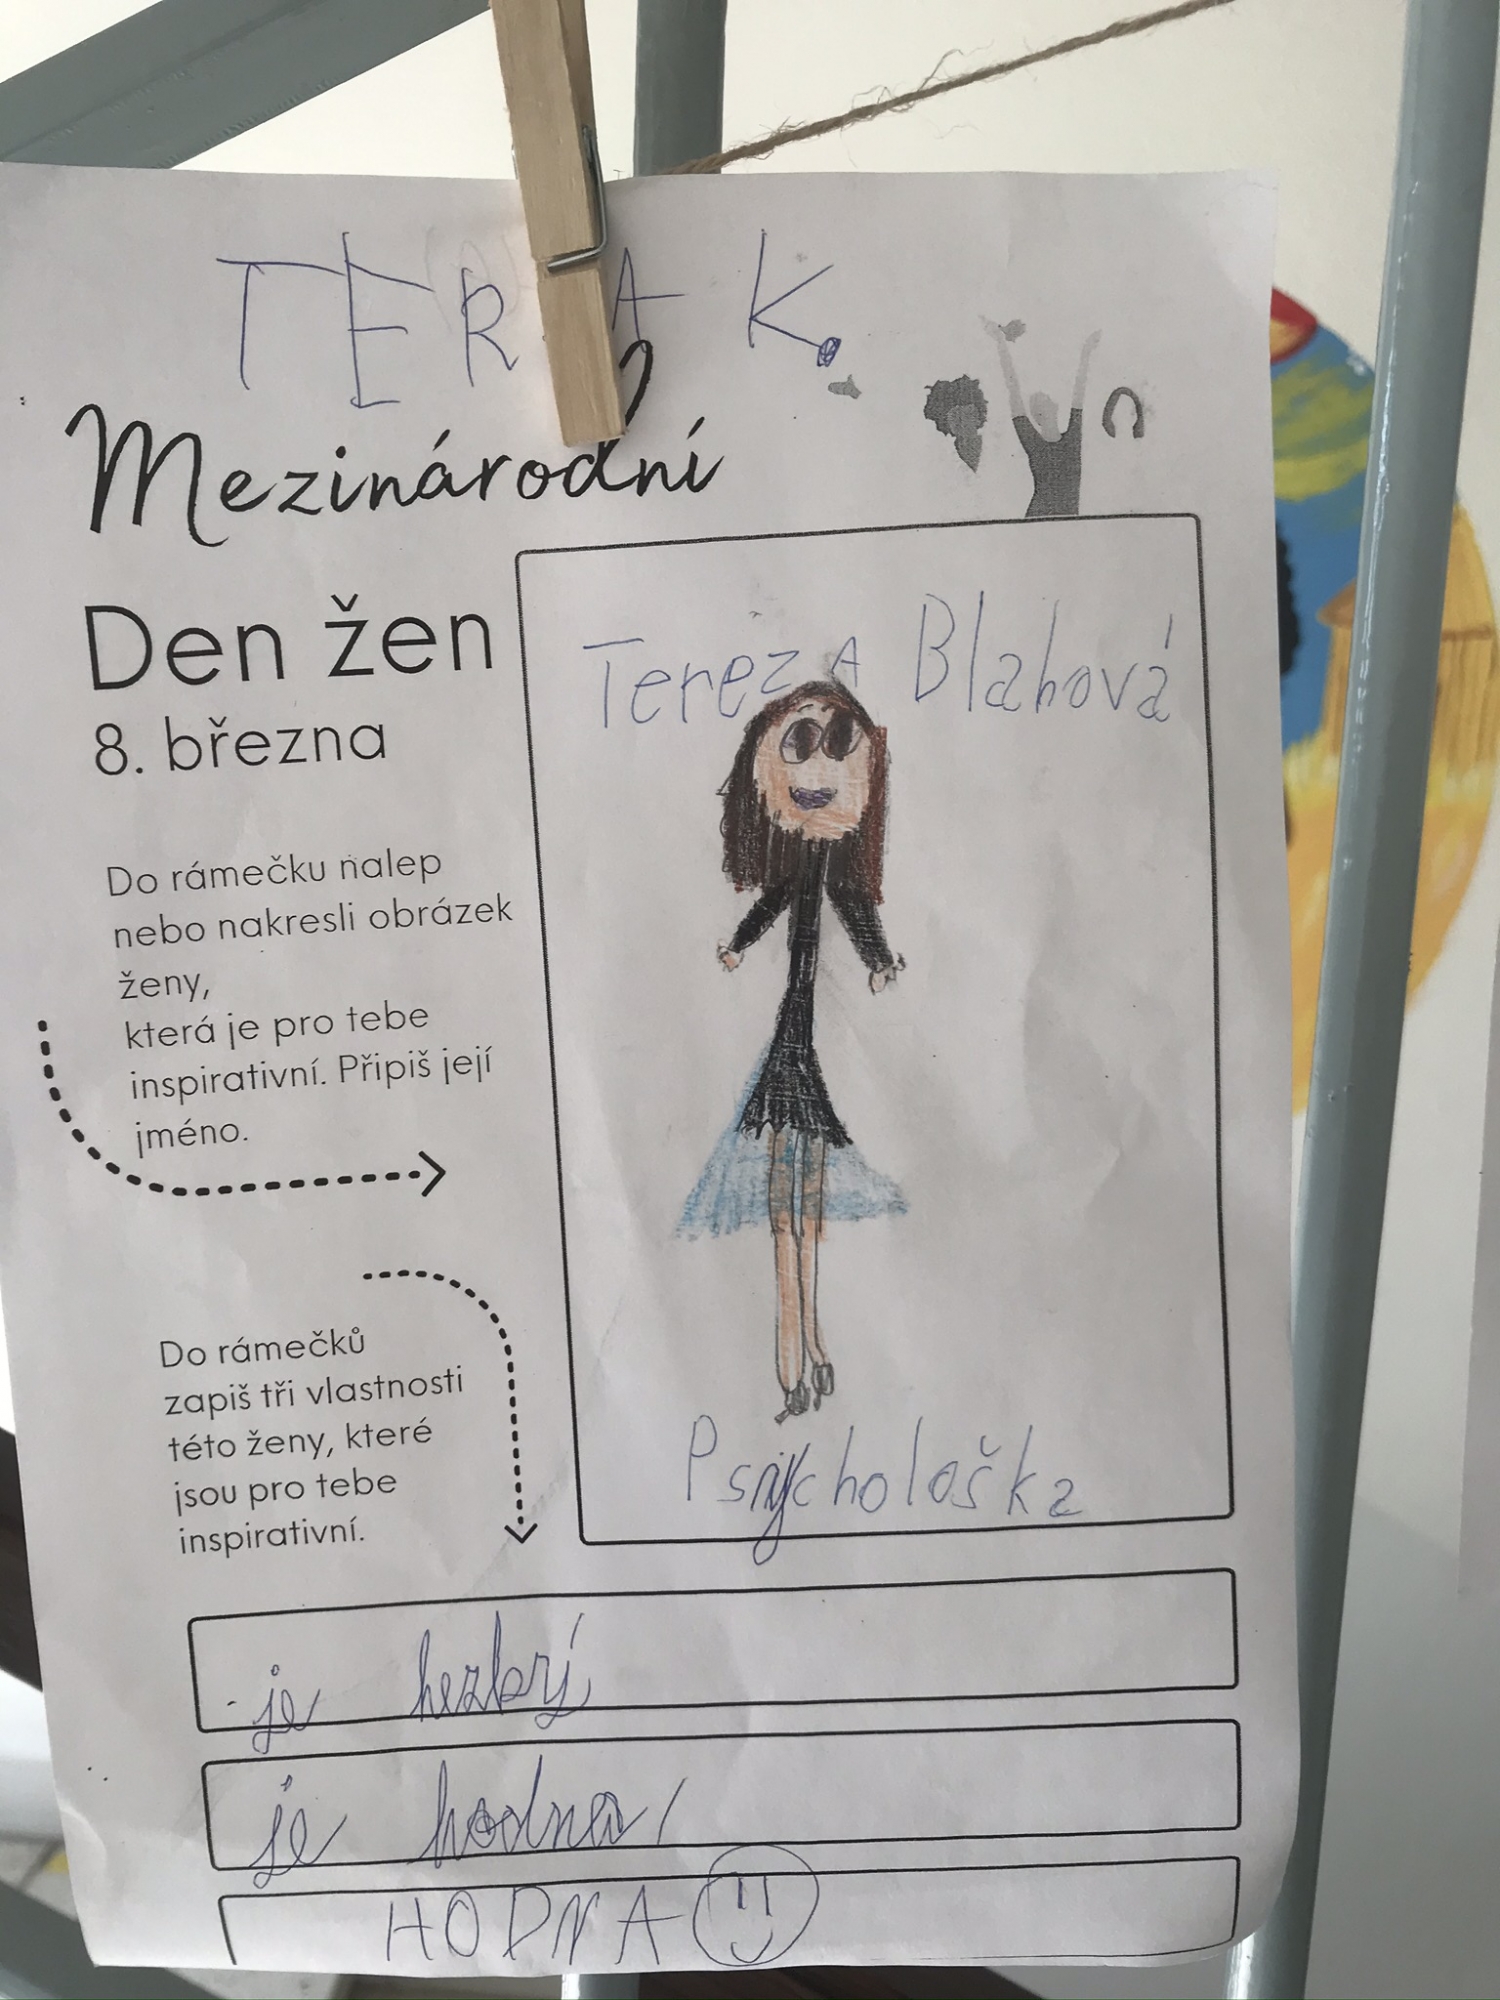 TER A K.
Mezinárodní
Den žen
8. března
Tereza Blahová
Do rámečku nalep
nebo nakresli obrázek
ženy,
která je pro tebe
inspirativní. Připiš její
jméno.
Do rámečků
zapiš tři vlastnosti
této ženy, které
jsou pro tebe
inspirativní.
Psychološka
je hezký
je hodna
HODNA